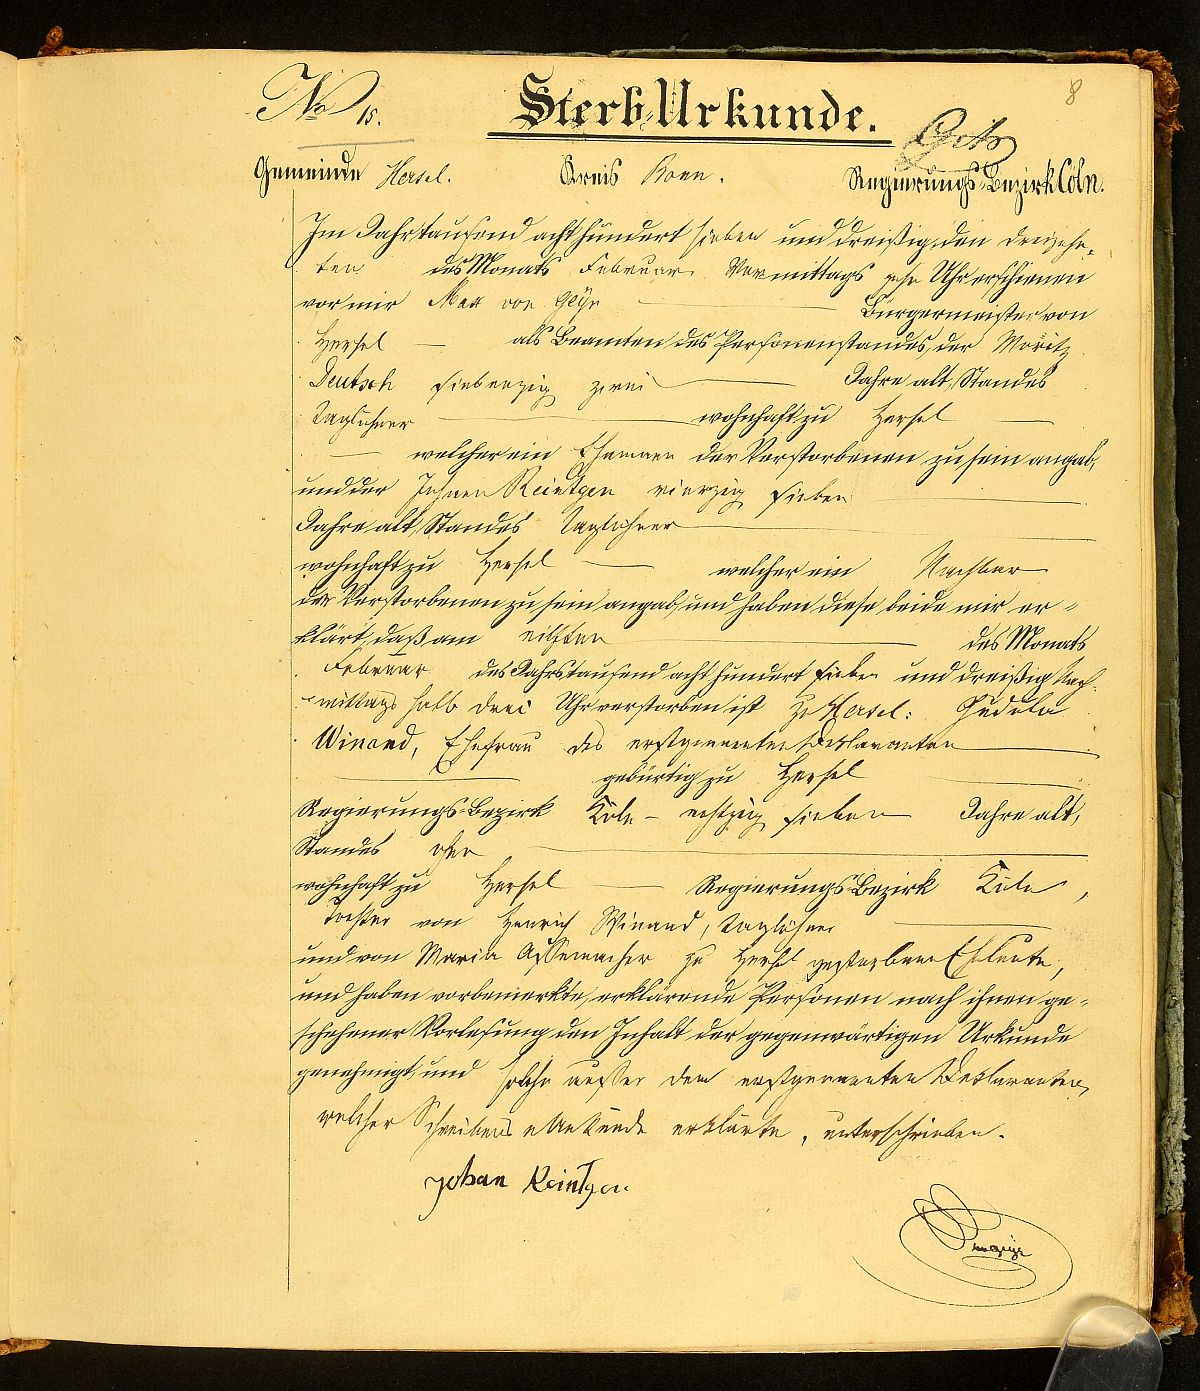 8
No 15. Sterb-Urkunde.
Gemeinde Hersel. Kreis Bonn. Regierungs-Bezirk Cöln.
Im Jahr tausend acht hundert sieben und dreißig, den dreizehn-
ten des Monats Februar Vormittags zehn Uhr erschienen
vor mir Max von Geyr Bürgermeister von
Hersel als Beamten des Personenstandes, der Moritz
Deutsch siebenzig zwei Jahre alt, Standes
Taglöhner wohnhaft zu Hersel
welcher ein Ehemann der Verstorbenen zu sein angab,
und der Johann Reintgen vierzig sieben
Jahre alt, Standes Taglöhner
wohnhaft zu Hersel welcher ein Nachbar
der Verstorbenen zu sein angab, und haben diese beide mir er-
klärt, daß am eilften des Monats
Februar des Jahrs tausend acht hundert sieben und dreißig Nach-
mittags halb drei Uhr verstorben ist zu Hersel: Gudula
Winand, Ehefrau des erstgenannten Deklaranten
gebürtig zu Hersel
Regierungs-Bezirk Köln – achtzig sieben Jahre alt,
Standes ohne
wohnhaft zu Hersel Regierungs-Bezirk Köln,
Tochter von Henrich Winand, Taglöhner
und von Maria Assenmacher zu Hersel gestorbene Eheleute,
und haben vorbemerkte, erklärende Personen nach ihnen ge-
schehener Vorlesung den Inhalt der gegenwärtigen Urkunde
genehmigt, und solche ausser dem erstgenannten Deklaranten,
welcher Schreibens erklärte, unterschrieben.
Johan Reintgen